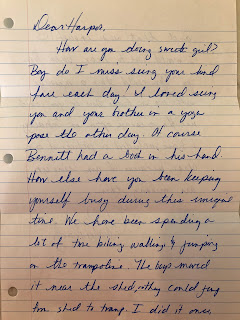 Dear Harper,
How are you doing sweet girl?
Boy do I miss seeing your kind
face each day! I loved seeing
you and your brother in a yoga
pose the other day. Of course
Bennett had a book in his hand.
How else have you been keeping
yourself busy during this unusual
time. We have been spending a
lot of time biking, walking & jumping
on the trampoline. The boys moved
it near the shed, so they could jump
from shed to tramp. I did it once